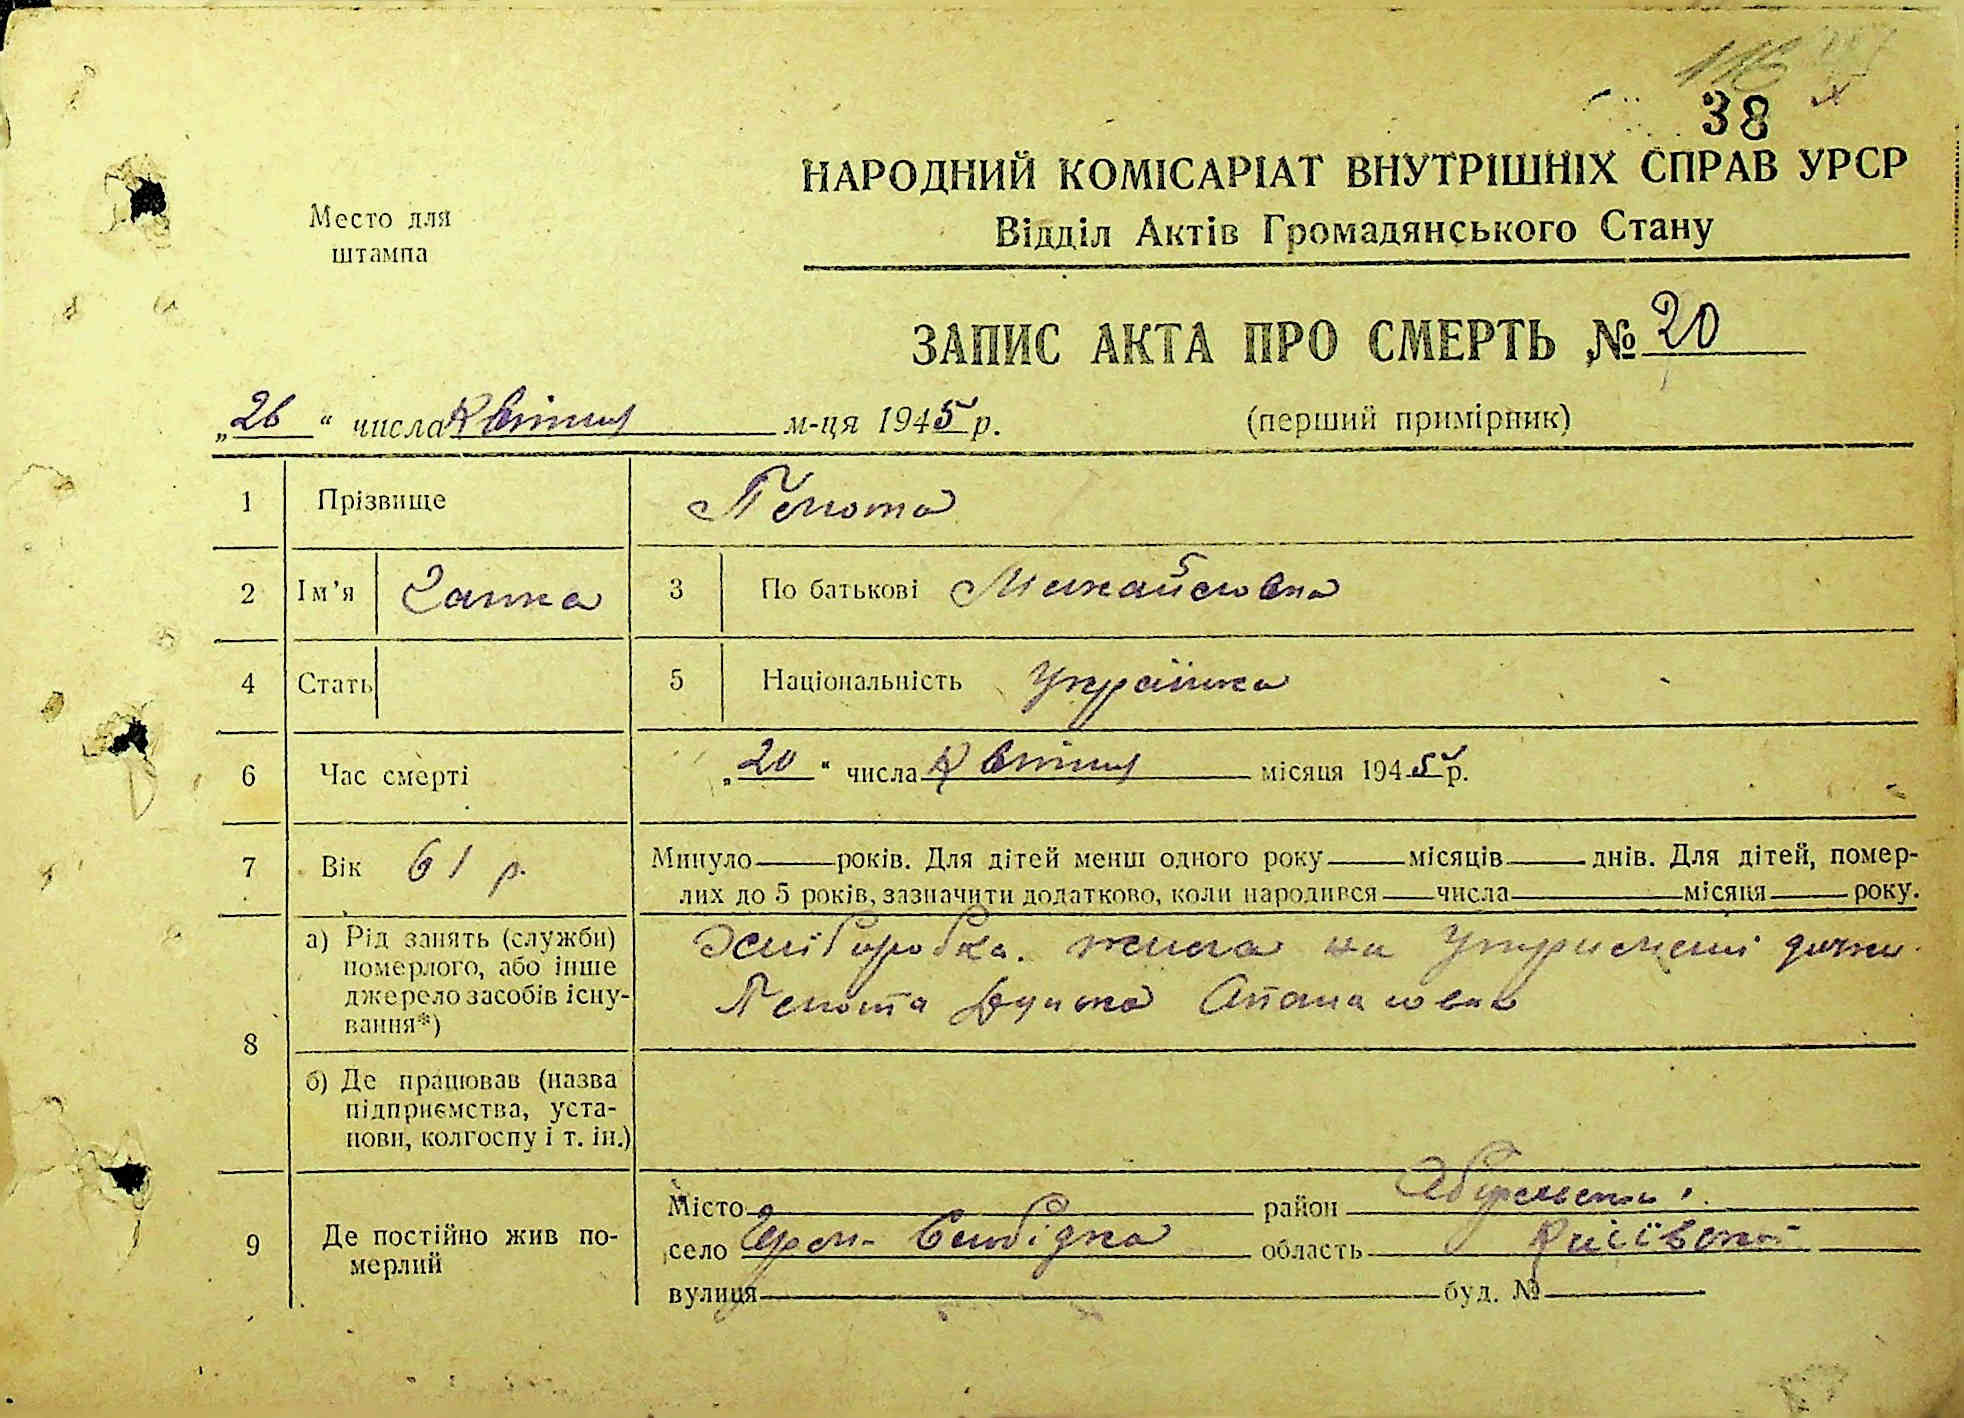 38
НАРОДНИЙ КОМІСАРІАТ ВНУТРІШНІХ СПРАВ УРСР
Место для штампа
Відділ Актів Громадянського Стану
ЗАПИС АКТА ПРО СМЕРТЬ № 20
„26“ числа Квітня м-ця 1945 р. (перший примірник)
1 Прізвище
2 Ім'я Ганна 3 По батькові Михайловна
4 Стать 5 Національність Українка
6 Час смерті „20“ числа Квітня місяця 1945 р.
7 Вік 61 р. Минуло року
років. Для дітей менш одного року місяців днів. Для дітей, помер-
лих до 5 років, зазначити додатково, коли народився числа місяця року.
8 а) Рід занять (служби) померлого, або інше джерело засобів існу-вання*)
Хліборобка. жила на Утриманні дочки
б) Де працював (назва підприємства, уста-нови, колгоспу і т. ін.)
9 Де постійно жив по-мерлий
Місто район
село Слобідка область Київської
вулиця буд. №